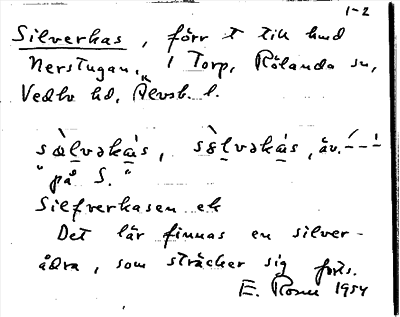 1-2
Silverkas, förr t till hmd
Nerstugan, 1 Torp, Rölanda sn,
Vedbo hd, Älvsb. l.
sœ̀lvəkás, sœ̀lvəkás, äv. ´ – – ̀
"på S."
Silfverkasen ek
Det lär finnas en silver-
ådra, som sträcker sig forts.
E. Rosén 1954